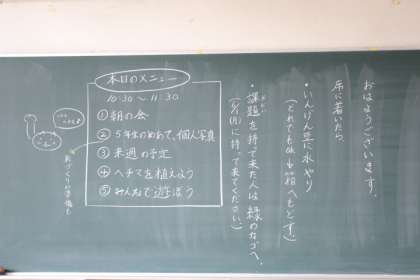 おはようございます。
席に着いたら
・いんげん豆に水やり
・課題を持って来た人は緑のカゴへ。
に持って来てください。)
本日のメニュー
10:30〜11:30
①朝の会
②5年生のめあて、個人写真
③来週の予定
④ヘチマを植えよう
⑤みんなで遊ぼう